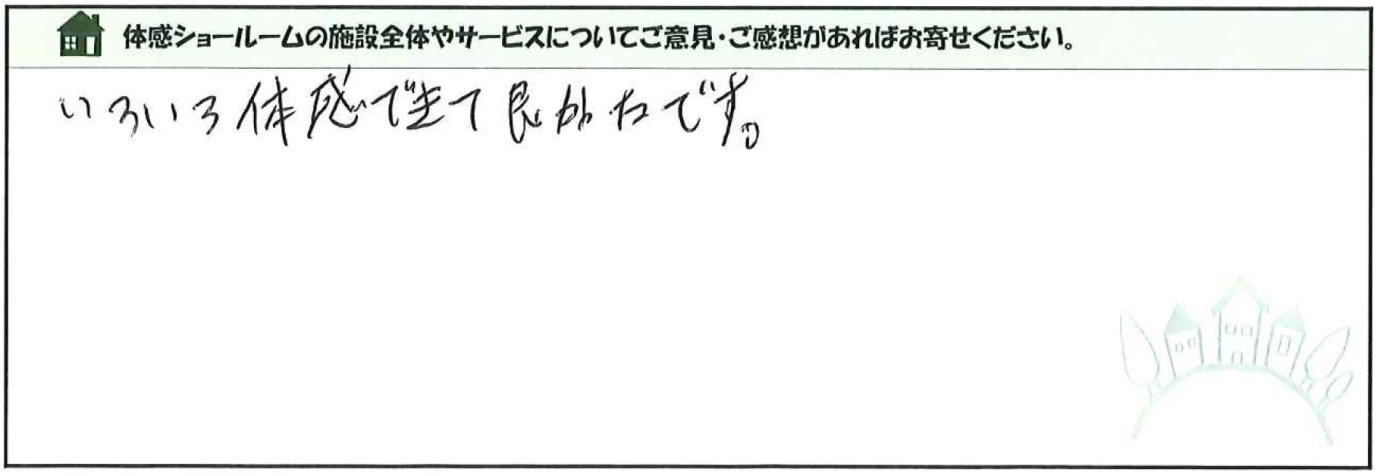 体感ショールームの施設全体やサービスについてご意見・ご感想があればお寄せください。
いろいろ体感できて良かったです。